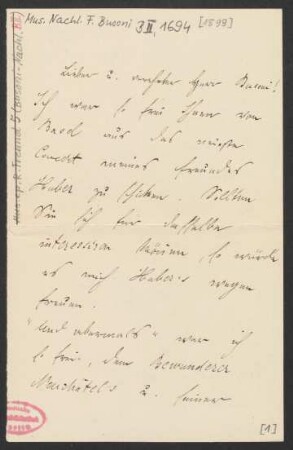 Mus. Nachl. F. Busoni B II, 1694 [1899]
Mus. ep. R. Freund 5 (Busoni-Nachl. B II)
Lieber u. verehrter Herr Busoni!
Ich war so frei Ihnen von
Basel aus das neueste
Concert meines Freundes
Huber zu schicken. Sollten
Sie sich für dasselbe
interessiren können, so würde
es mich Huber's wegen
freuen.
"Und abermals" war ich
so frei, dem Bewunderer
Merihôtel's u. seiner
[1]